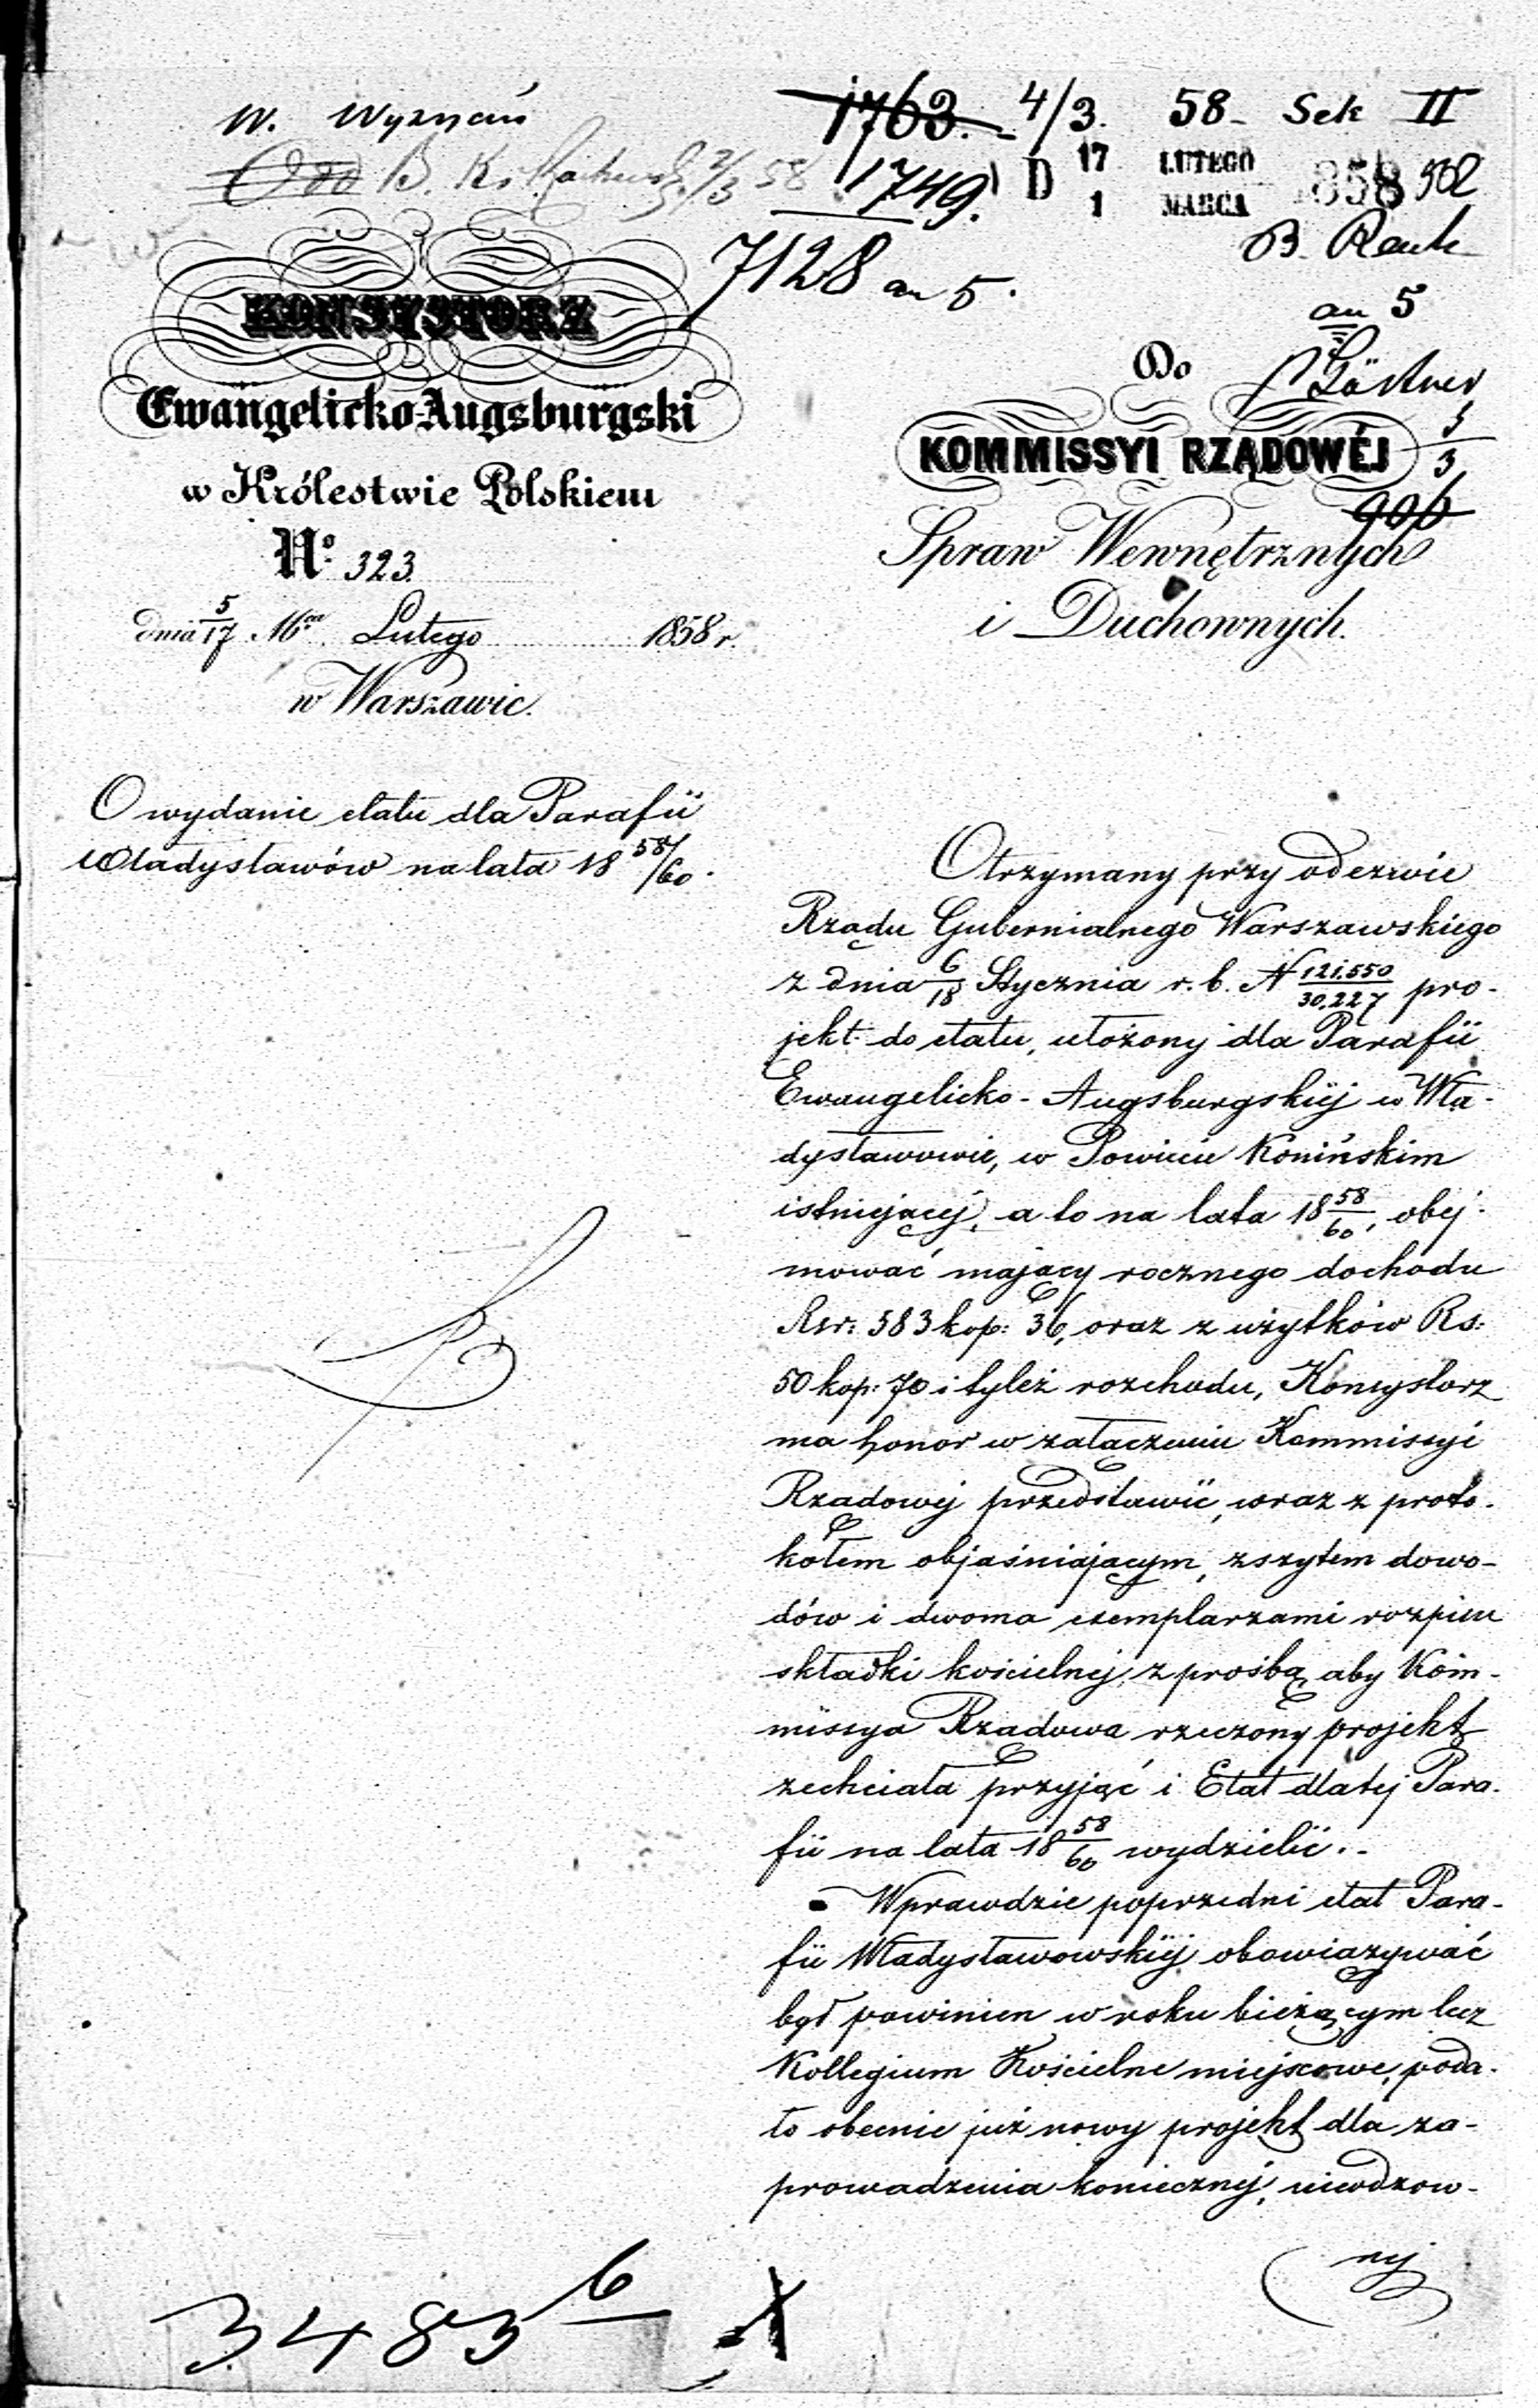 W. Wyznań
1763. 4/3. 58 Sek II
B. 2/3 58 1749.
D 17 LUTEGO 1 MARCA 1858 902
B. Rauh
7128 an 5.
an 5
KONSYSTORZ
Ewangelicko-Augsburgski
w Królestwie Polskiem
No 323.
dnia 5/17 Mca Lutego 1858 r.
w Warszawie.
Do
KOMMISSYI RZĄDOWÉJ
5/3
906
Spraw Wewnętrznych
i Duchownych.
O wydanie etatu dla Parafii
Władysławów na lata 18 58/60.
Otrzymany przy odezwie
Rządu Gubernialnego Warszawskiego
z dnia 6/18 Stycznia r. b. N 121.550/30.227 pro-
jekt do etatu, ułożony dla Parafii
Ewangelicko-Augsburgskiéj w Wła-
dysławowie, w Powiecie Konińskim
istniejącéj, a to na lata 18 58/60, obej-
mować mający rocznego dochodu
Rsr: 583 kop: 36, oraz z użytków Rs:
50 kop: 70 i tyleż rozchodu, Konsystorz
ma honor w załączeniu Kommissyi
Rządowej przedstawić, wraz z proto-
kołem objaśniającym, zszytem dowo-
dów i dwoma exemplarzami rozpisu
składki kościelnéj, z prośbą, aby Kom-
missya Rządowa rzeczony projekt
zechciała przyjąć i Etat dla tej Para-
fii na lata 18 58/60 wydzielić.-
Wprawdzie poprzedni etat Para-
fii Władysławowskiéj obowiązywać
był powinien w roku bieżącym lecz
Kollegium Kościelne miejscowe, poda-
ło obecnie już nowy projekt dla za-
prowadzenia koniecznéj, niewdzow-
nej
3483 6